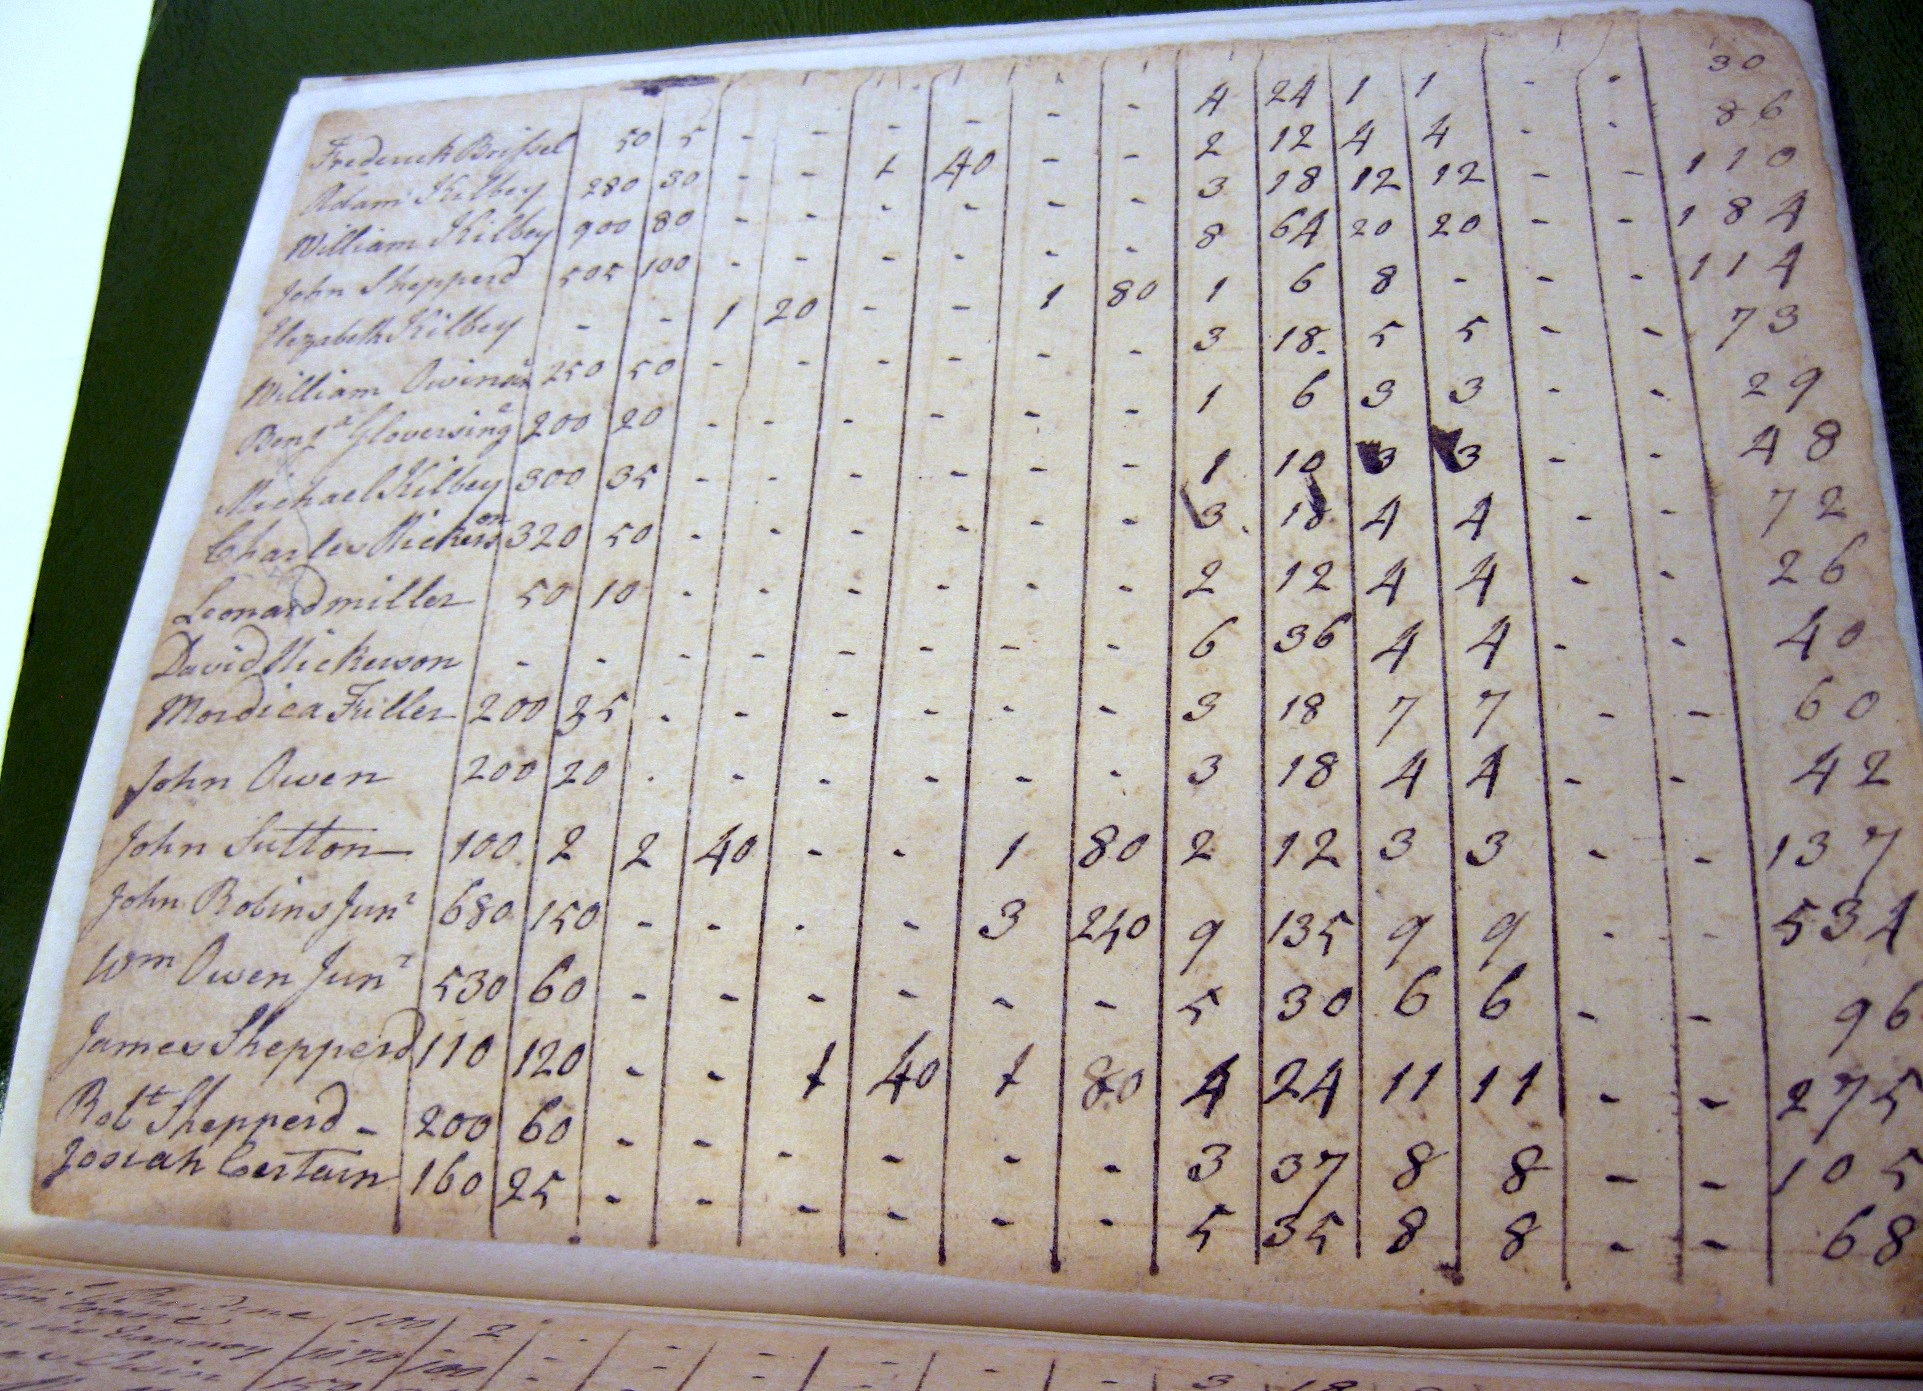 Frederick Brissel 50 5 - - - - - - 4 24 1 1 - - 30
Adam Kilbey 280 30 - - 1 40 - - 2 12 4 4 - - 86
William Kilbey 900 80 - - - - - - 3 18 12 12 - - 110
John Shepperd 505 100 - - - - - - 8 64 20 20 - - 184
Elezabeth Kilbey - - 1 20 - - 1 80 1 6 8 - - - 114
William Owin 250 50 - - - - - - 3 18 5 5 - - 73
Benja Gloversing 200 20 - - - - - - 1 6 3 3 - - 29
Michael Kilbey 300 35 - - - - - - 1 10 3 3 - - 48
Charles Nickerson 320 50 - - - - - - 3 18 4 4 - - 72
Leonard miller 50 10 - - - - - - 2 12 4 4 - - 26
David Nickerson - - - - - - - - 6 36 4 4 - - 40
Mordica Fuller 200 35 - - - - - - 3 18 7 7 - - 60
John Owen 200 20 - - - - - - 3 18 4 4 - - 42
John Sutton 100 2 2 40 - - 1 80 2 12 3 3 - - 137
John Robins Junr 680 150 - - - - 3 240 9 135 9 9 - - 534
Wm Owen Junr 530 60 - - - - - - 5 30 6 6 - - 96
James Shepperd 110 120 - - 1 40 1 80 4 24 11 11 - - 275
Robt Shepperd - 200 60 - - - - - - 3 37 8 8 - - 105
Josiah Certain 160 25 - - - - - - 5 35 8 8 - - 68
100 2 -
1070 100 - - - - - -
Owin 150 3 18